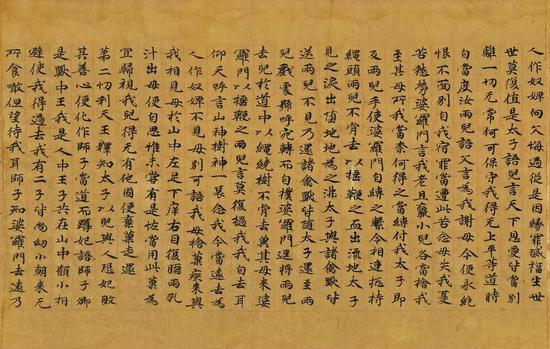 人作奴婢何父悔過從是因緣罪滅福生世
世莫復值是太子語兒言天下恩愛皆當別
離一切无常何可保守我得无上平等道時
自當度汝兩兒語父言為我謝母今便永絕
恨不面別自我宿罪當遭此苦念母失我憂
苦愁勞婆羅門言我老且羸小兒各當捨我
至其母所我當柰何得之當縛付我太子即
反兩兒手使婆羅門自縛之繫令相連揔持
繩頭兩兒不肯去以捶鞭之血出流地太子
見之淚出墮地地為之沸太子與諸禽獸皆
送兩兒不見乃還諸禽獸皆隨太子還至
兒戲處號呼宛轉而自撲婆羅門遂將兩兒
去兒於道中以繩繞樹不肯去冀其母來婆
羅門以捶鞭之兩兒言莫復撾我我自去耳
仰天呼言山神樹神一哀念我今當遠去為
人作奴婢不見母別可語我母捨菓疾來與
我相見母於山中左足下痒右目復瞤兩乳
汁出母便自思惟未嘗有是恠當用此菓為
宜歸視我兒得无有他因便棄菓走還
第二忉利天王釋知太子以兒與人恐妃敗
其善心便化作師子當道而蹲妃語師子卿
是獸中王我是人中王子共在山中願小相
避使我得過去我有二子皆尚幼小朝來无
所食噉但望待我耳師子知婆羅門去遠乃